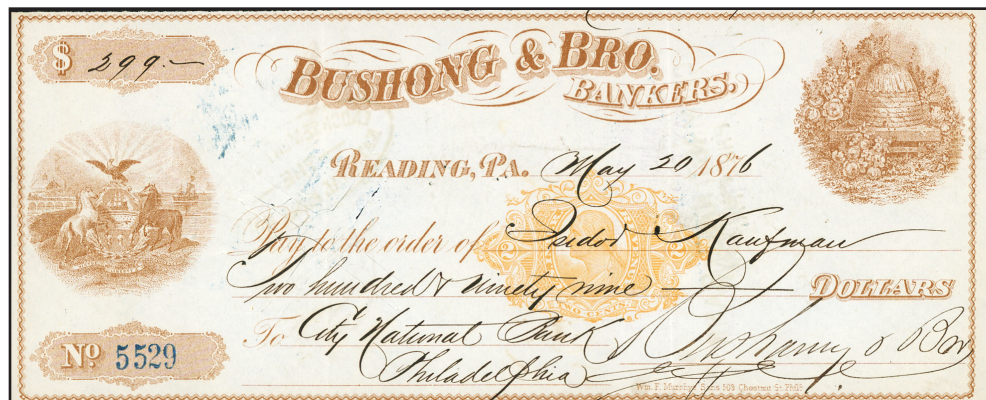 $ 299.–
BUSHONG & BRO.
BANKERS.
READING, PA. May 20 1876
Pay to the order of Isidor Kaufman
Two hundred & ninety nine DOLLARS
To City National Bank
Philadelphia
Bushong & Bro
No 5529
Wm. F. Murphy's Sons 509 Chestnut St. Phila